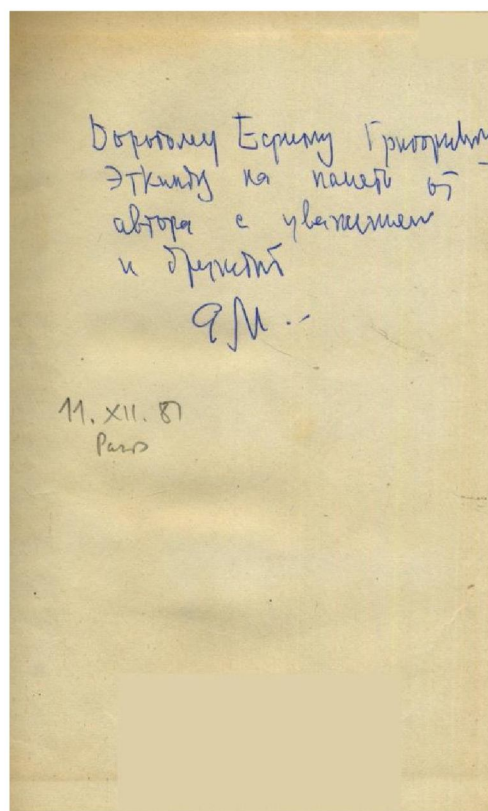 Дорогому Ефиму Григорьевичу
Эткинду на память от
автора с уважением
и дружбой
11. XII. 81
Paris